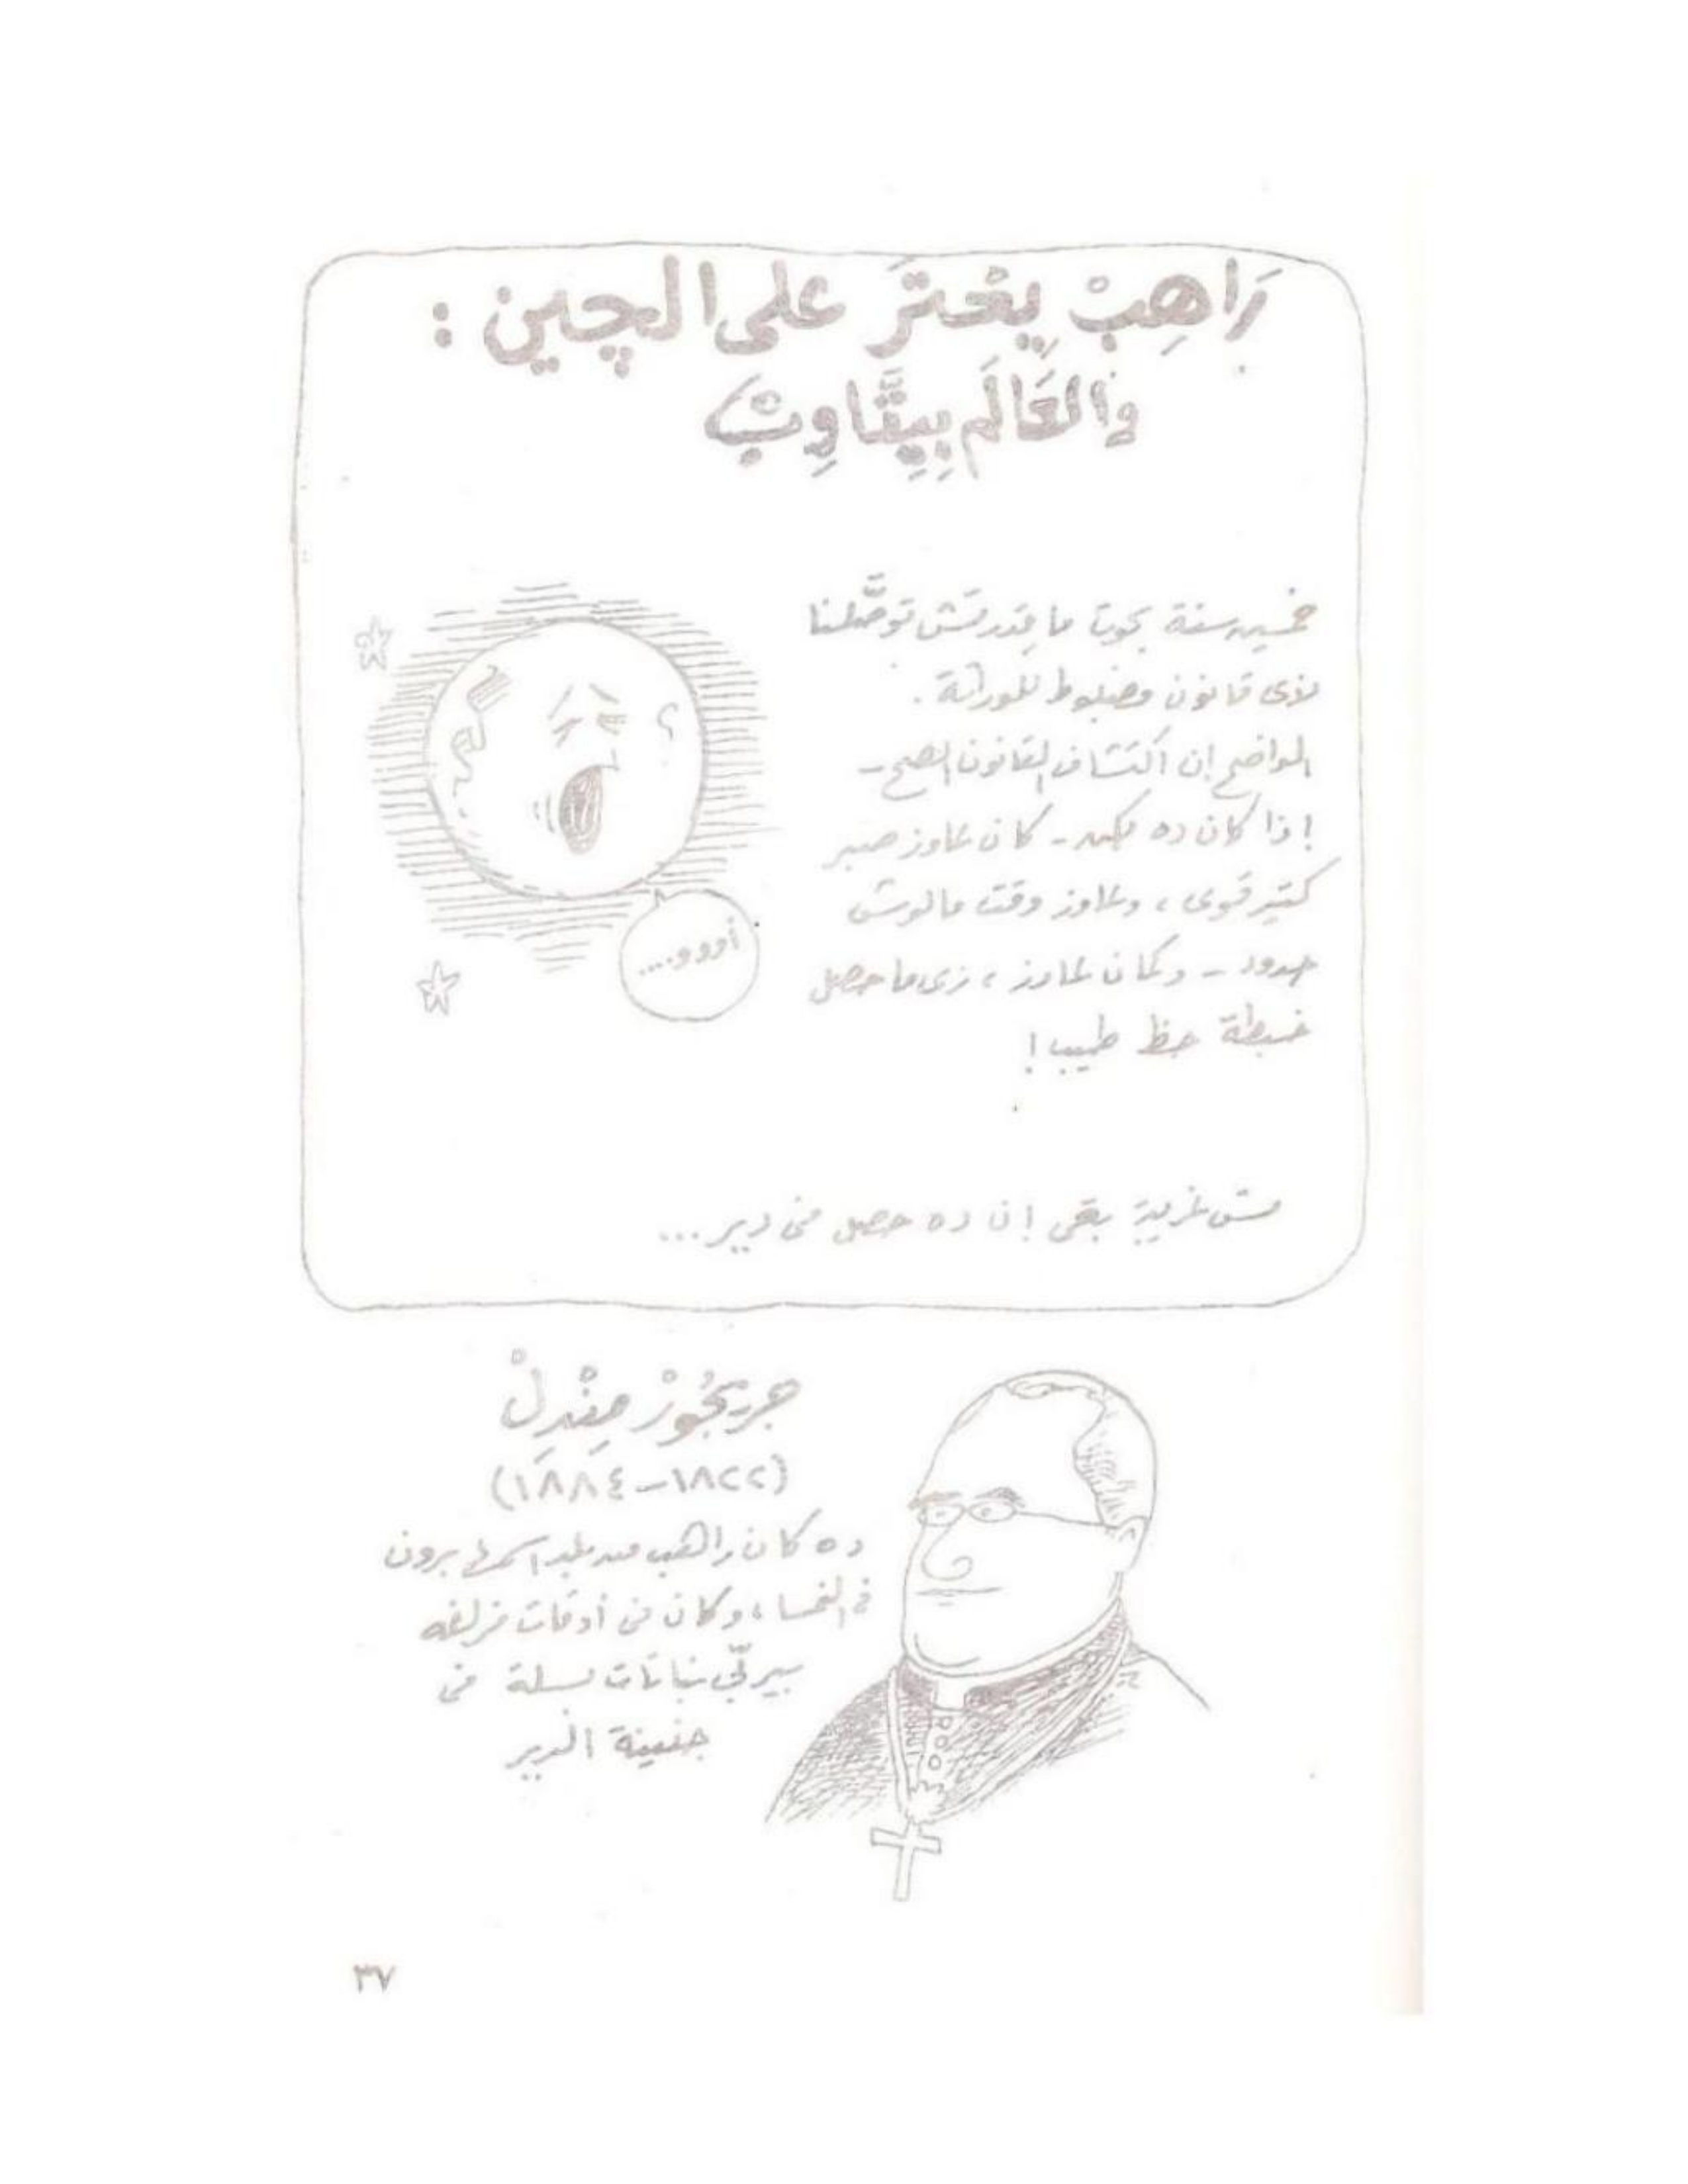 رَاهِبْ يِعْتَرَ على الچين :
والعَالَم بِيِتَّاوِبْ
خمسين سنة بحوث ما قدرتش توصَّلنا
لأى قانون مضبوط للوراثة .
الواضح إن اكتشاف القانون الصح -
إذا كان ده ممكن - كان عاوز صبر
كتير قوى ، وعاوز وقت مالوش
حدود - وكمان عاوز ، زى ما حصل
خبطة حظ طيب !
أووو....
مش غريبة بقى إن ده حصل فى دير ...
جريجُورْ مِنْدِلْ
(١٨٢٢-١٨٨٤)
ده كان راهب من بلد اسمها برون
فى النمسا ، وكان فى أوقات فراغه
بيربّى نباتات بسلة فى
جنينة الدير
٣٧